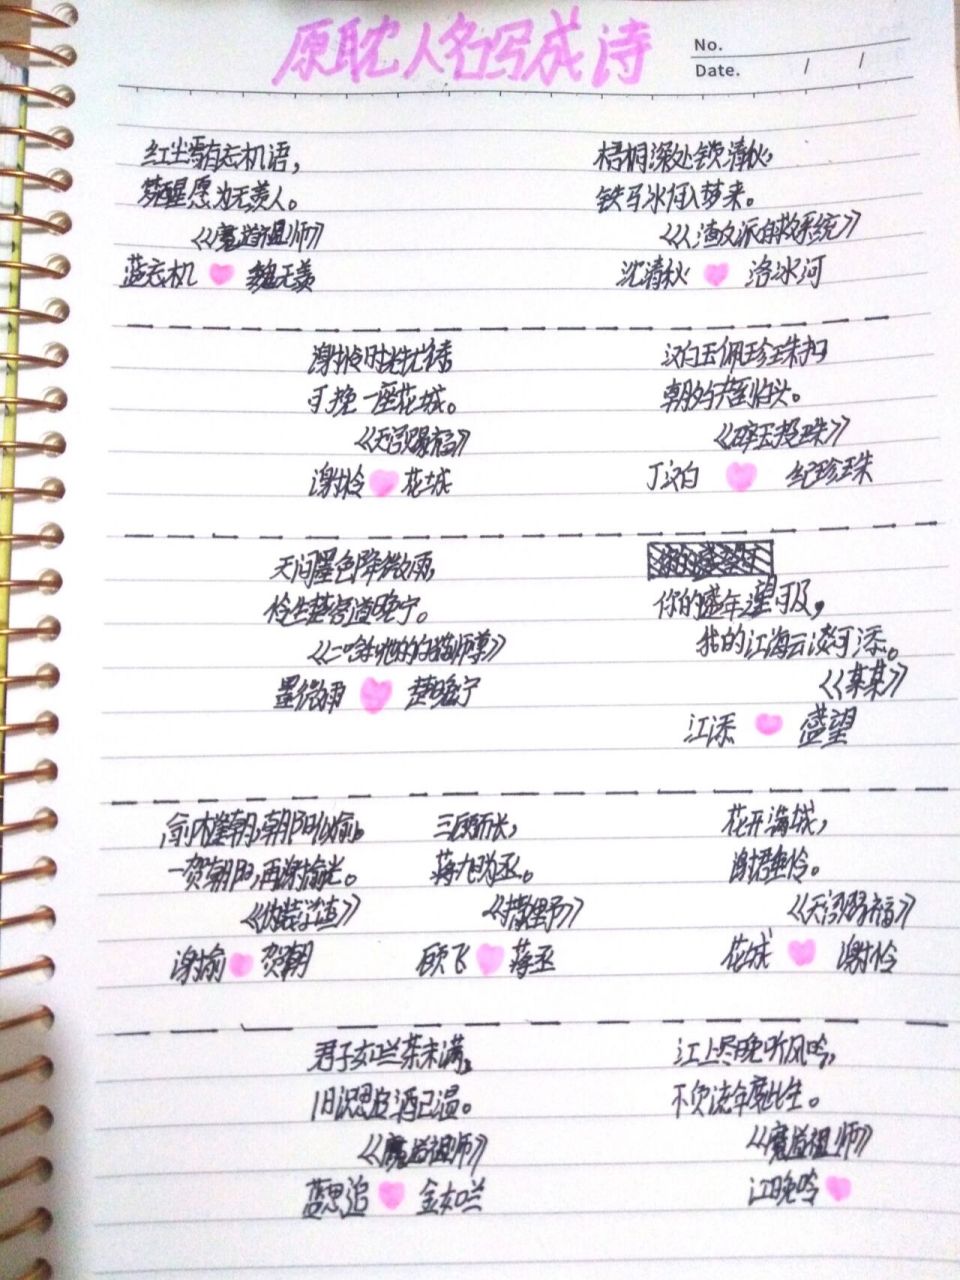 原耽人名写成诗
No.
Date. / /
红尘喜有忘机语,
梦醒愿为无羡人。
《魔道祖师》
蓝忘机 魏无羡
梧桐深处锁清秋,
铁马冰河入梦来。
《人渣反派自救系统》
沈清秋 洛冰河
谢怜
可挽一座花城。
《天官赐福》
谢怜 花城
汉白玉佩珍珠扣
朝夕与共到白头。
《碎玉投珠》
丁汉白 纪珍珠
天问墨色降微雨,
怜生楚宫道晚宁。
《二哈和他的白猫师尊》
墨微雨 楚晚宁
你的盛年望可及,
我的江海云淡可添。
《某某》
江添 盛望
俞内逢朝,朝阳似愉。
一贺朝阳,再谢愉光。
《伪装学渣》
谢俞 贺朝
三顾而长,
蒋旭为丞。
《撒野》
顾飞 蒋丞
花开满城,
谢君垂怜。
《天官赐福》
花城 谢怜
君子如兰茶未满,
旧识思追酒已温。
《魔道祖师》
蓝思追 金如兰
江上尽晚听风吟,
不负流年度此生。
《魔道祖师》
江晚吟